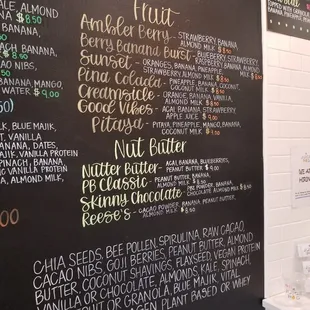 Fruit
Ambler Berry - STRAWBERRY, BANANA,
ALMOND MILK
Berry Banana Burst - BLUEBERRY, STRAWBERRY
Sunset - ORANGES, BANANA, PINEAPPLE,
STRAWBERRY, ALMOND MILK
Pina Colada - PINEAPPLE, BANANA, COCONUT,
COCONUT MILK
Creamsicle - ORANGE, BANANA, VANILLA,
ALMOND MILK
Good Vibes - ACAI, BANANA, STRAWBERRY,
APPLE JUICE $9.00
Pitaya - PITAYA, PINEAPPLE, MANGO, BANANA,
COCONUT MILK $9.00
Nut Butter
Nutter Butter - ACAI, BANANA, BLUEBERRIES,
PEANUT BUTTER, $9.00
PB Classic - PEANUT BUTTER, BANANA,
ALMOND MILK $8.50
Skinny Chocolate - PB2 POWDER, BANANA,
CHOCOLATE ALMOND MILK $8.50
Reese's - CACAO POWDER, BANANA, PEANUT BUTTER,
ALMOND MILK $8.50
CHIA SEEDS, BEE POLLEN, SPIRULINA, RAW CACAO,
CACAO NIBS, GOJI BERRIES, PEANUT BUTTER, ALMOND
BUTTER, COCONUT SHAVINGS, FLAXSEED, VEGAN PROTEIN
VANILLA OR CHOCOLATE, ALMONDS, KALE, SPINACH,
FRUIT OR GRANOLA, BLUE MAJIK, VITAL
PLANT BASED OR WHEY
BANANA,
$9.00
BANANA,
NIBS,
BANANA, MANGO,
WATER $9.00
MILK, BLUE MAJIK,
VANILLA
BANANA, DATES,
VANILLA PROTEIN
SPINACH, BANANA,
VANILLA PROTEIN
ALMOND MILK,
TOPPED WITH
GRANOLA,
PINEAPPLE,
HIRING